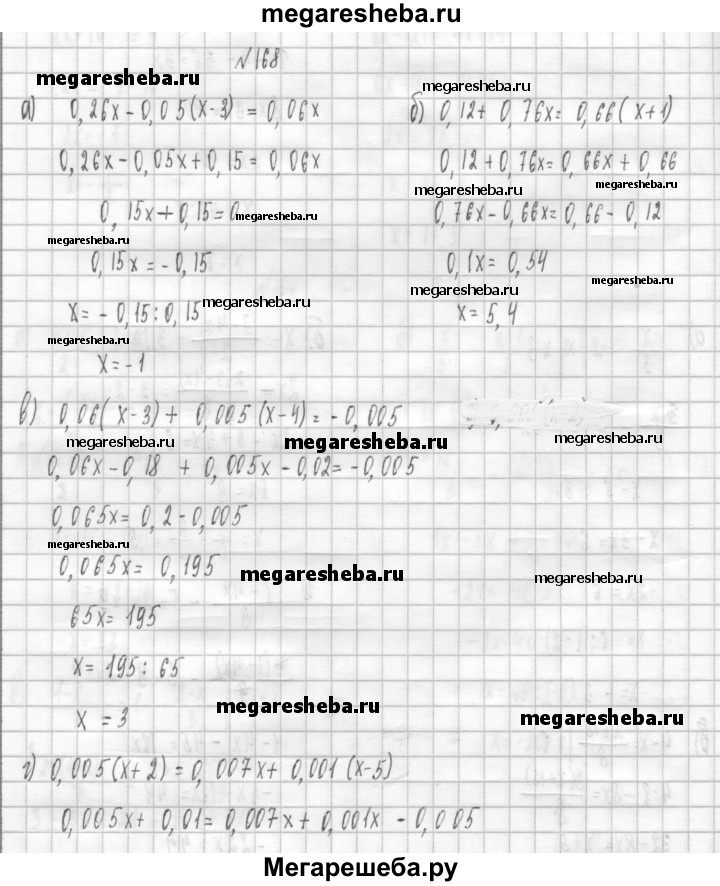 megaresheba.ru
№168
megaresheba.ru
megaresheba.ru
а) 0,26x-0,05(x-3) = 0,06x
0,26x-0,05x+0,15=0,06x
0,15x+0,15=0
megaresheba.ru
megaresheba.ru
0,15x=-0,15
x=-0,15:0,15
megaresheba.ru
megaresheba.ru
x=-1
б) 0,12+0,76x=0,66(x+1)
0,12+0,76x=0,66x+0,66
megaresheba.ru
megaresheba.ru
0,76x-0,66x=0,66-0,12
0,1x=0,54
megaresheba.ru
megaresheba.ru
x=5,4
в) 0,06(x-3)+0,005(x-4)=-0,005
megaresheba.ru
megaresheba.ru
megaresheba.ru
0,06x-0,18+0,005x-0,02=-0,005
0,065x=0,2-0,005
megaresheba.ru
0,065x=0,195
megaresheba.ru
megaresheba.ru
65x=195
x=195:65
x=3
megaresheba.ru
megaresheba.ru
г) 0,005(x+2)=0,007x+0,001(x-5)
0,005x+0,01=0,007x+0,001x-0,005
Мегарешеба.ру